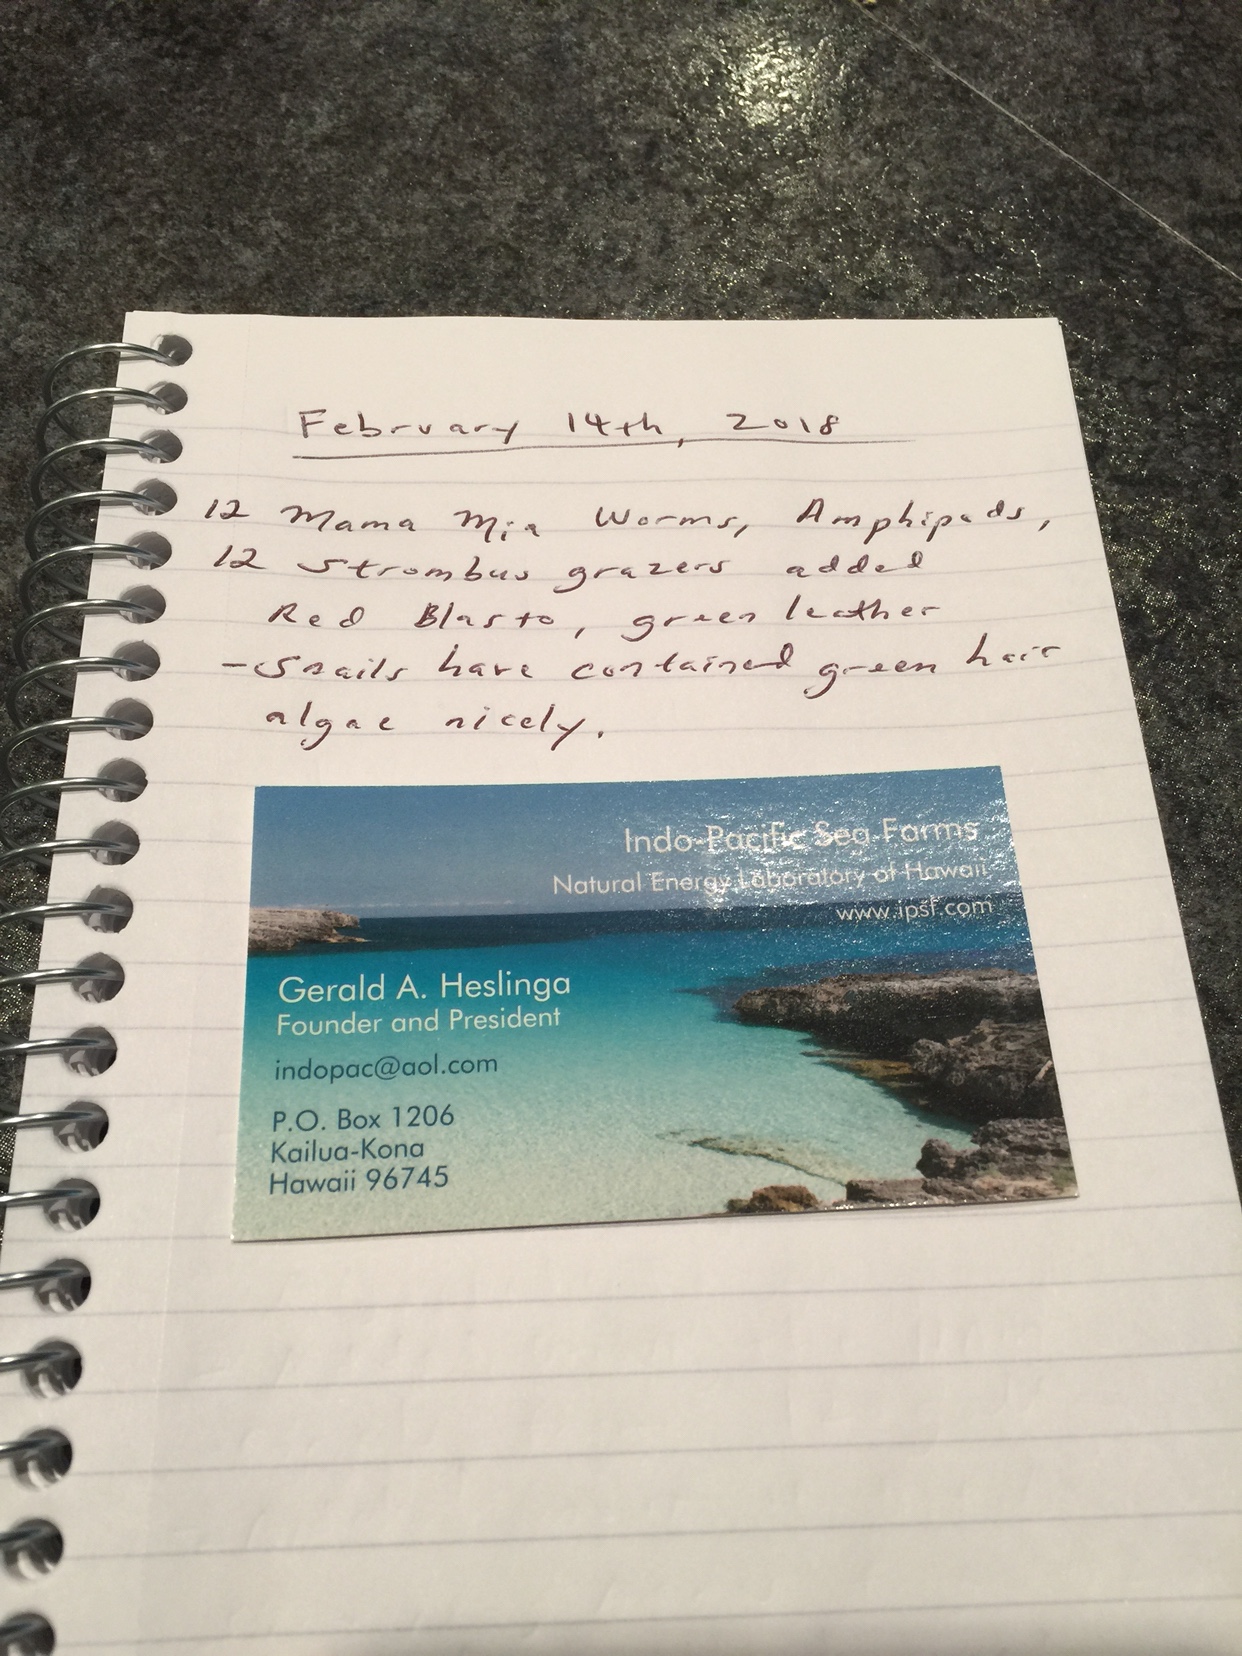 February 14th, 2018
12 Mama Mia Worms, Amphipods,
12 Strombus grazers added
Red Blasto, green leather
- Snails have contained green hair
algae nicely.
Indo-Pacific Sea Farms
Natural Energy Laboratory of Hawaii
www.ipsf.com
Gerald A. Heslinga
Founder and President
indopac@aol.com
P.O. Box 1206
Kailua-Kona
Hawaii 96745